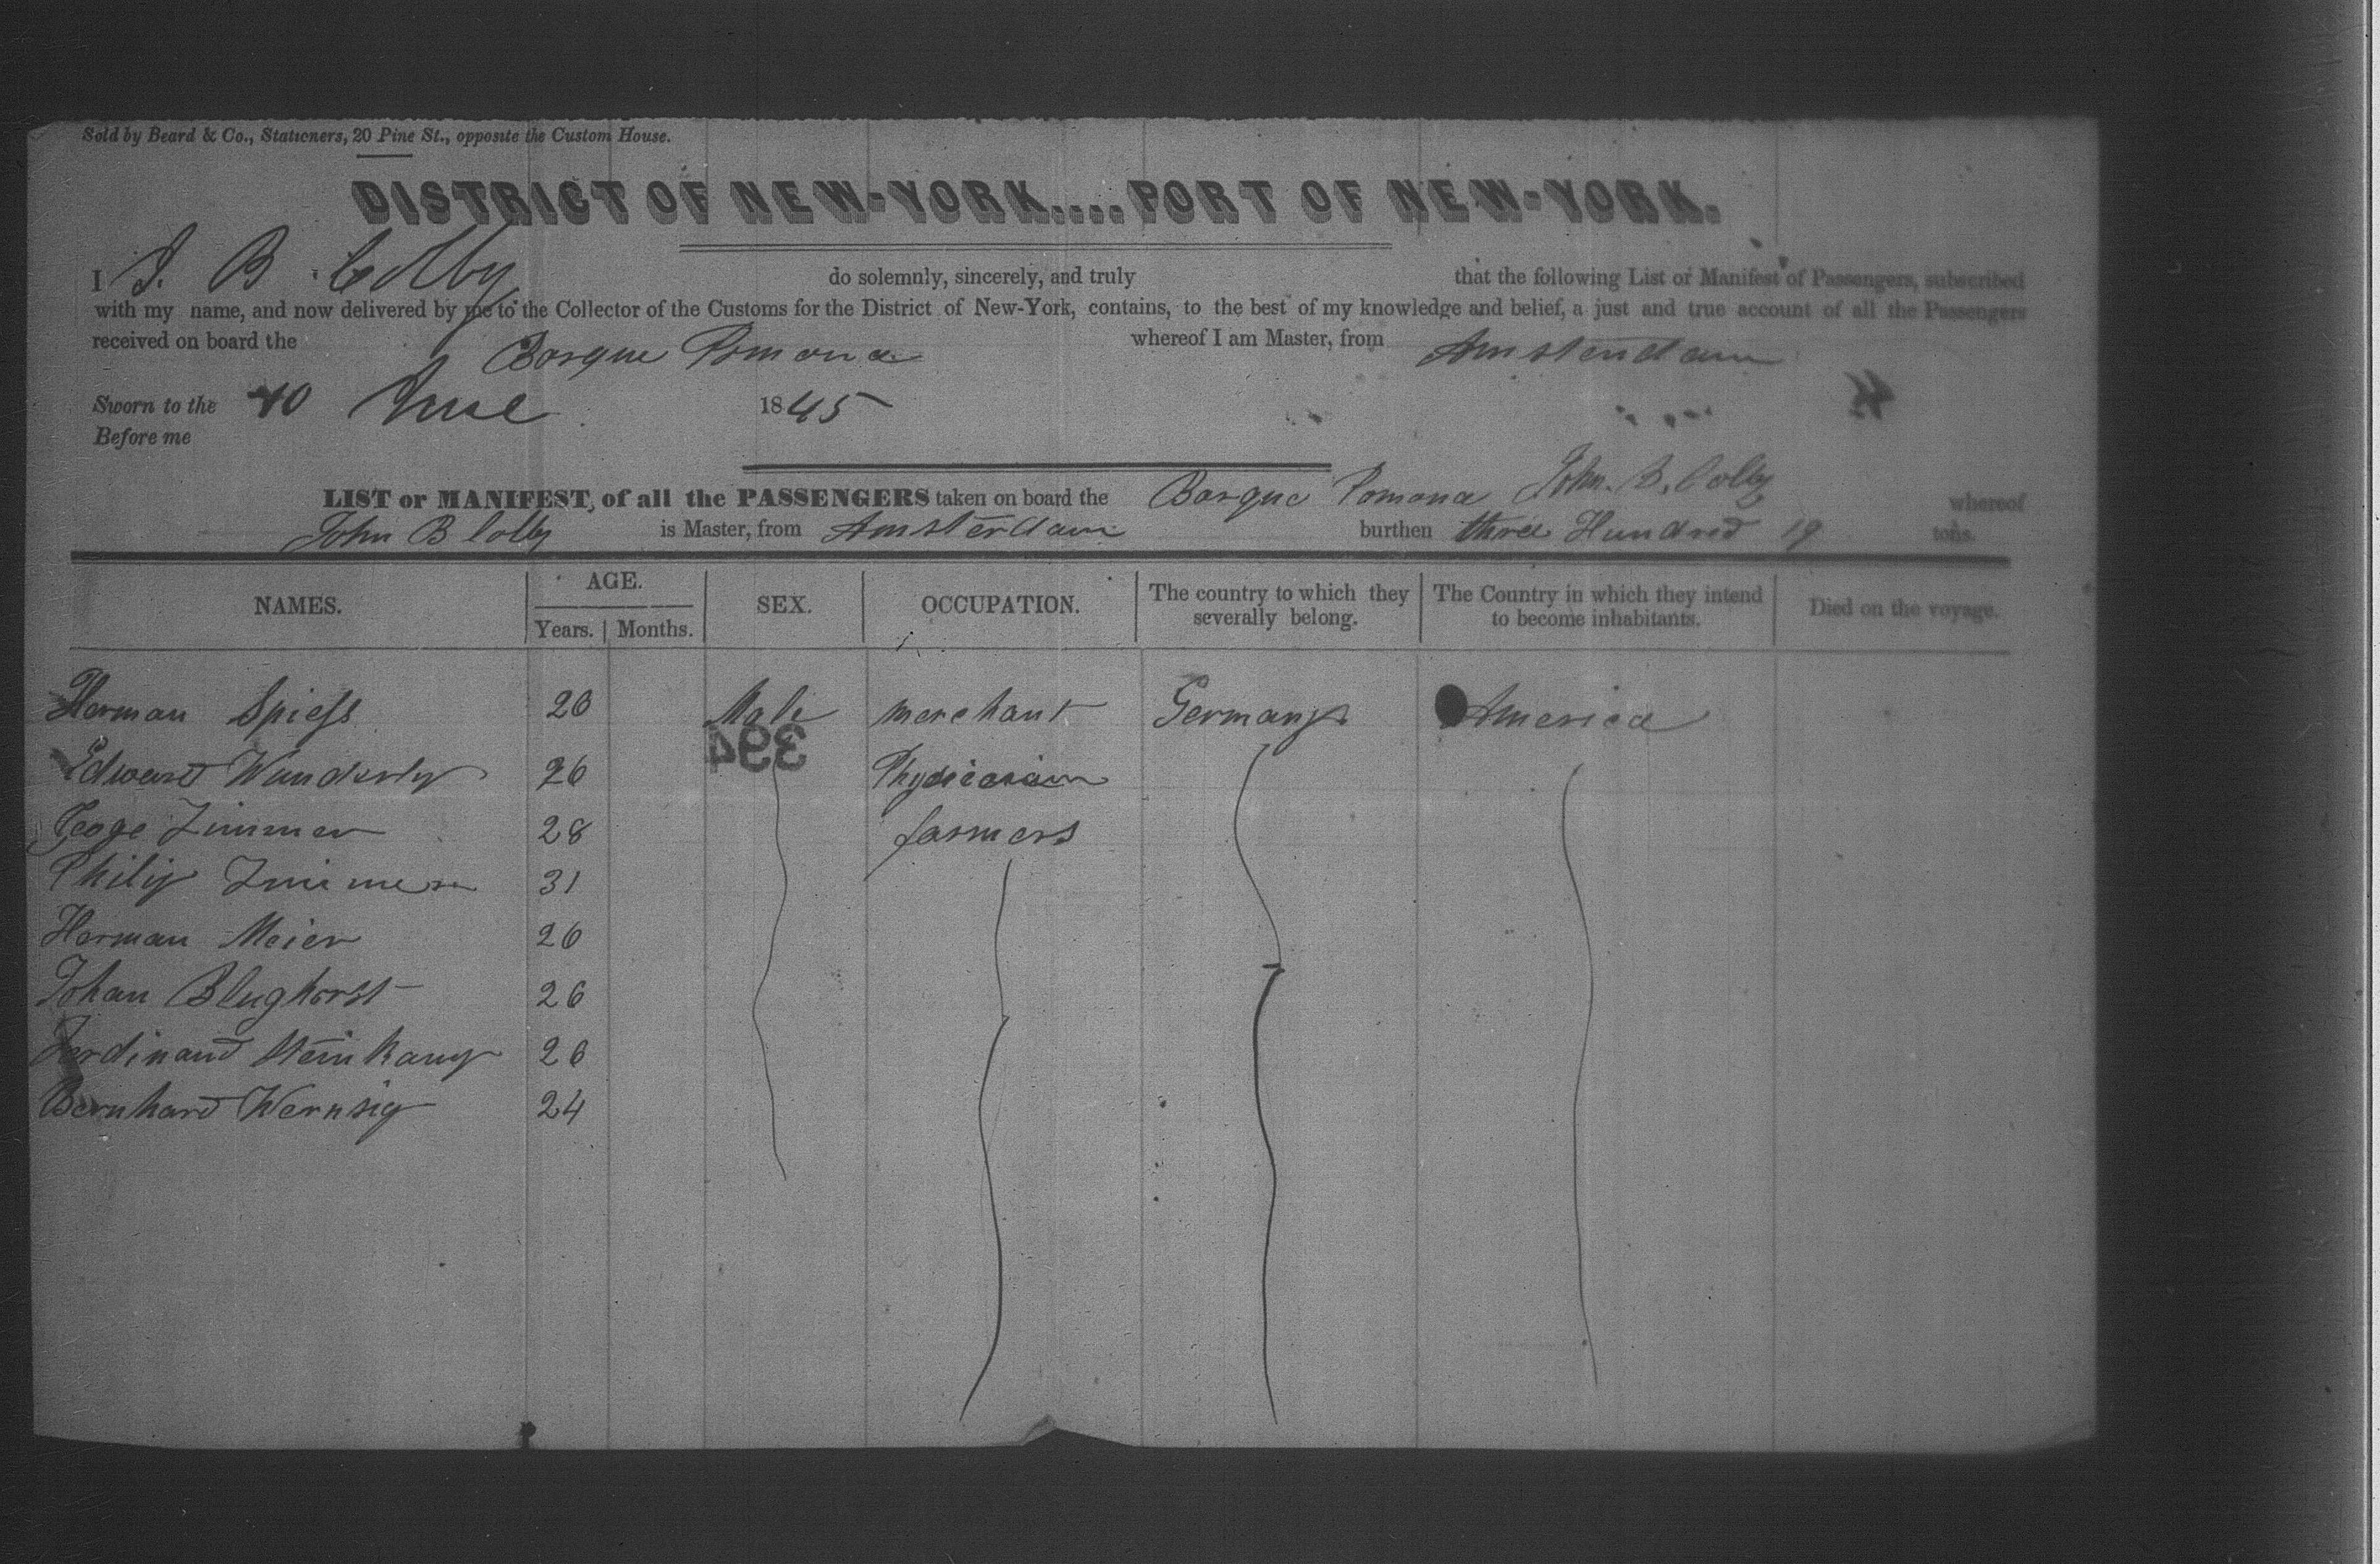 Sold by Beard & Co., Stationers, 20 Pine St., opposite the Custom House.
DISTRICT OF NEW-YORK....PORT OF NEW-YORK.
I J. B. Colby do solemnly, sincerely, and truly that the following List or Manifest of Passengers, subscribed
with my name, and now delivered by me to the Collector of the Customs for the District of New-York, contains, to the best of my knowledge and belief, a just and true account of all the Passengers
received on board the Barque Pomona whereof I am Master, from Amsterdam
Sworn to the 10 June 1845
Before me
John. B. Colby
LIST or MANIFEST, of all the PASSENGERS taken on board the Barque Pomona whereof
John B Colby is Master, from Amsterdam burthen three Hundred 19 tons.
NAMES. AGE. Years. Months. SEX. OCCUPATION. The country to which they severally belong. The Country in which they intend to become inhabitants. Died on the voyage.
Herman Spiess 26 Male merchant Germany America
394
Edward Wunderly 26 Physician
Geoge Zimmer 28 farmers
Philip Zimmer 31
Herman Meier 26
Johan Blughorst 26
Ferdinand Steinkamp 26
Bernhard Wernsig 24